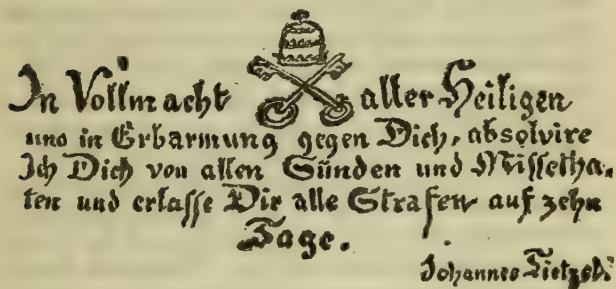 In Vollmacht aller Heiligen
uno in Erbarmung gegen Dich, absolvire
Ich Dich von allen Sünden und Missetha-
ten und erlasse Dir alle Strafen auf zehn
Tage.
Johannes Tietzel.